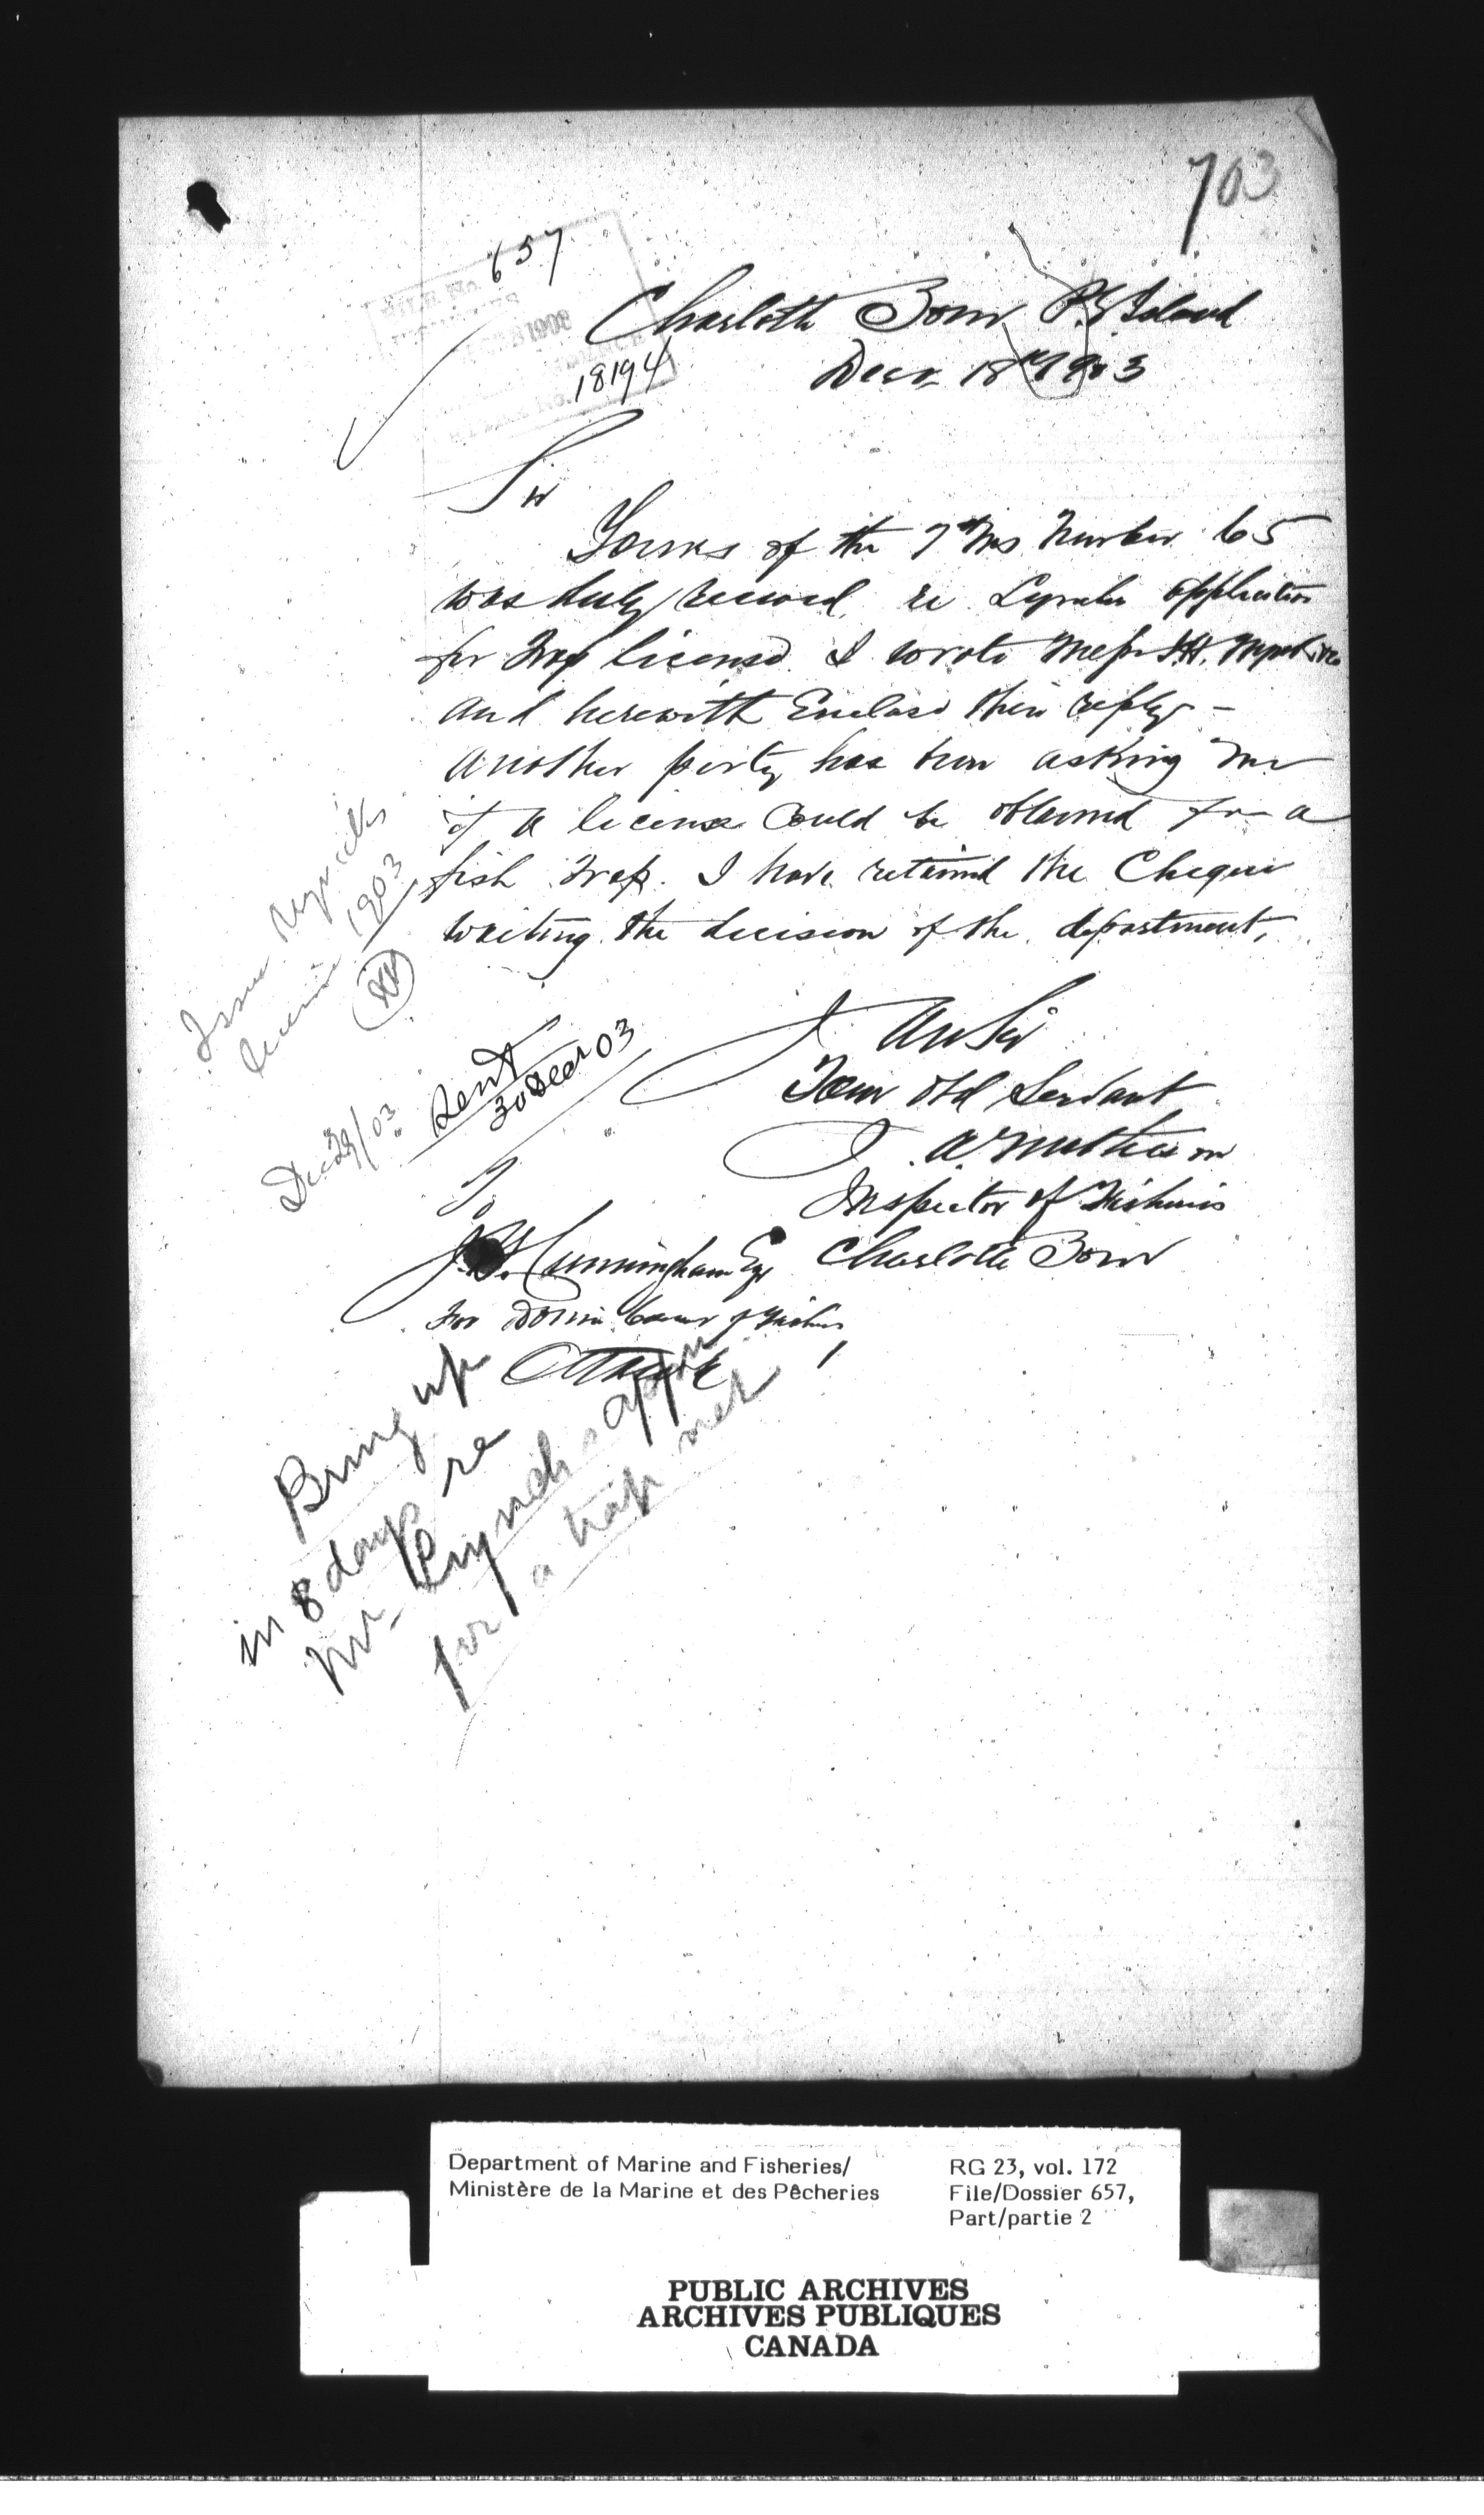 703
657
FILE No.
18194
Charlotte Town P.E Island
Decr 18th 1903
Sir
Yours of the 7th Ins Number 65
was duly received re Lynchs application
for Trap license. I wrote Messr
and herewith Enclose their reply -
Another party has been asking me
if a license could be obtained for a
fish trap. I have retained the Cheque
waiting the decision of the department,
I am Sir
Your Obd Servant
A. Matheson
Inspector of Fisheries
Charlotte Town
To
Cunningham Esqr
For Domin Comr of Fisheries
Ottawa
Issue
license 1903
Dec 29/03
Sent
30 Decr 03
Bring up
in 8 days re
Mr Lynch's appn
for a trap net
Department of Marine and Fisheries/
Ministère de la Marine et des Pêcheries
RG 23, vol. 172
File/Dossier 657,
Part/partie 2
PUBLIC ARCHIVES
ARCHIVES PUBLIQUES
CANADA